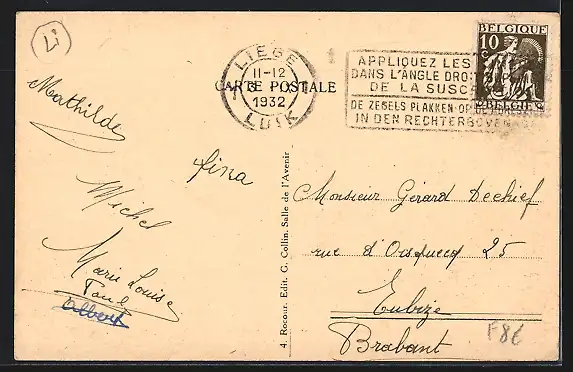 Li
BELGIQUE
10
C
BELGIE
LIEGE
11-12
1932
LUIK
APPLIQUEZ LES
DANS L'ANGLE DROIT
DE LA SUSC
DE ZEGELS PLAKKEN OP
IN DEN RECHTERBOVEN
CARTE POSTALE
Mathilde
fina
Michel
Marie Louise
Paul
Albert
4. Rocour. Edit. G. Collin, Salle de l'Avenir
Monsieur Gérard Dechief
rue d'Oisquercq 25
Tubize
Brabant
F86